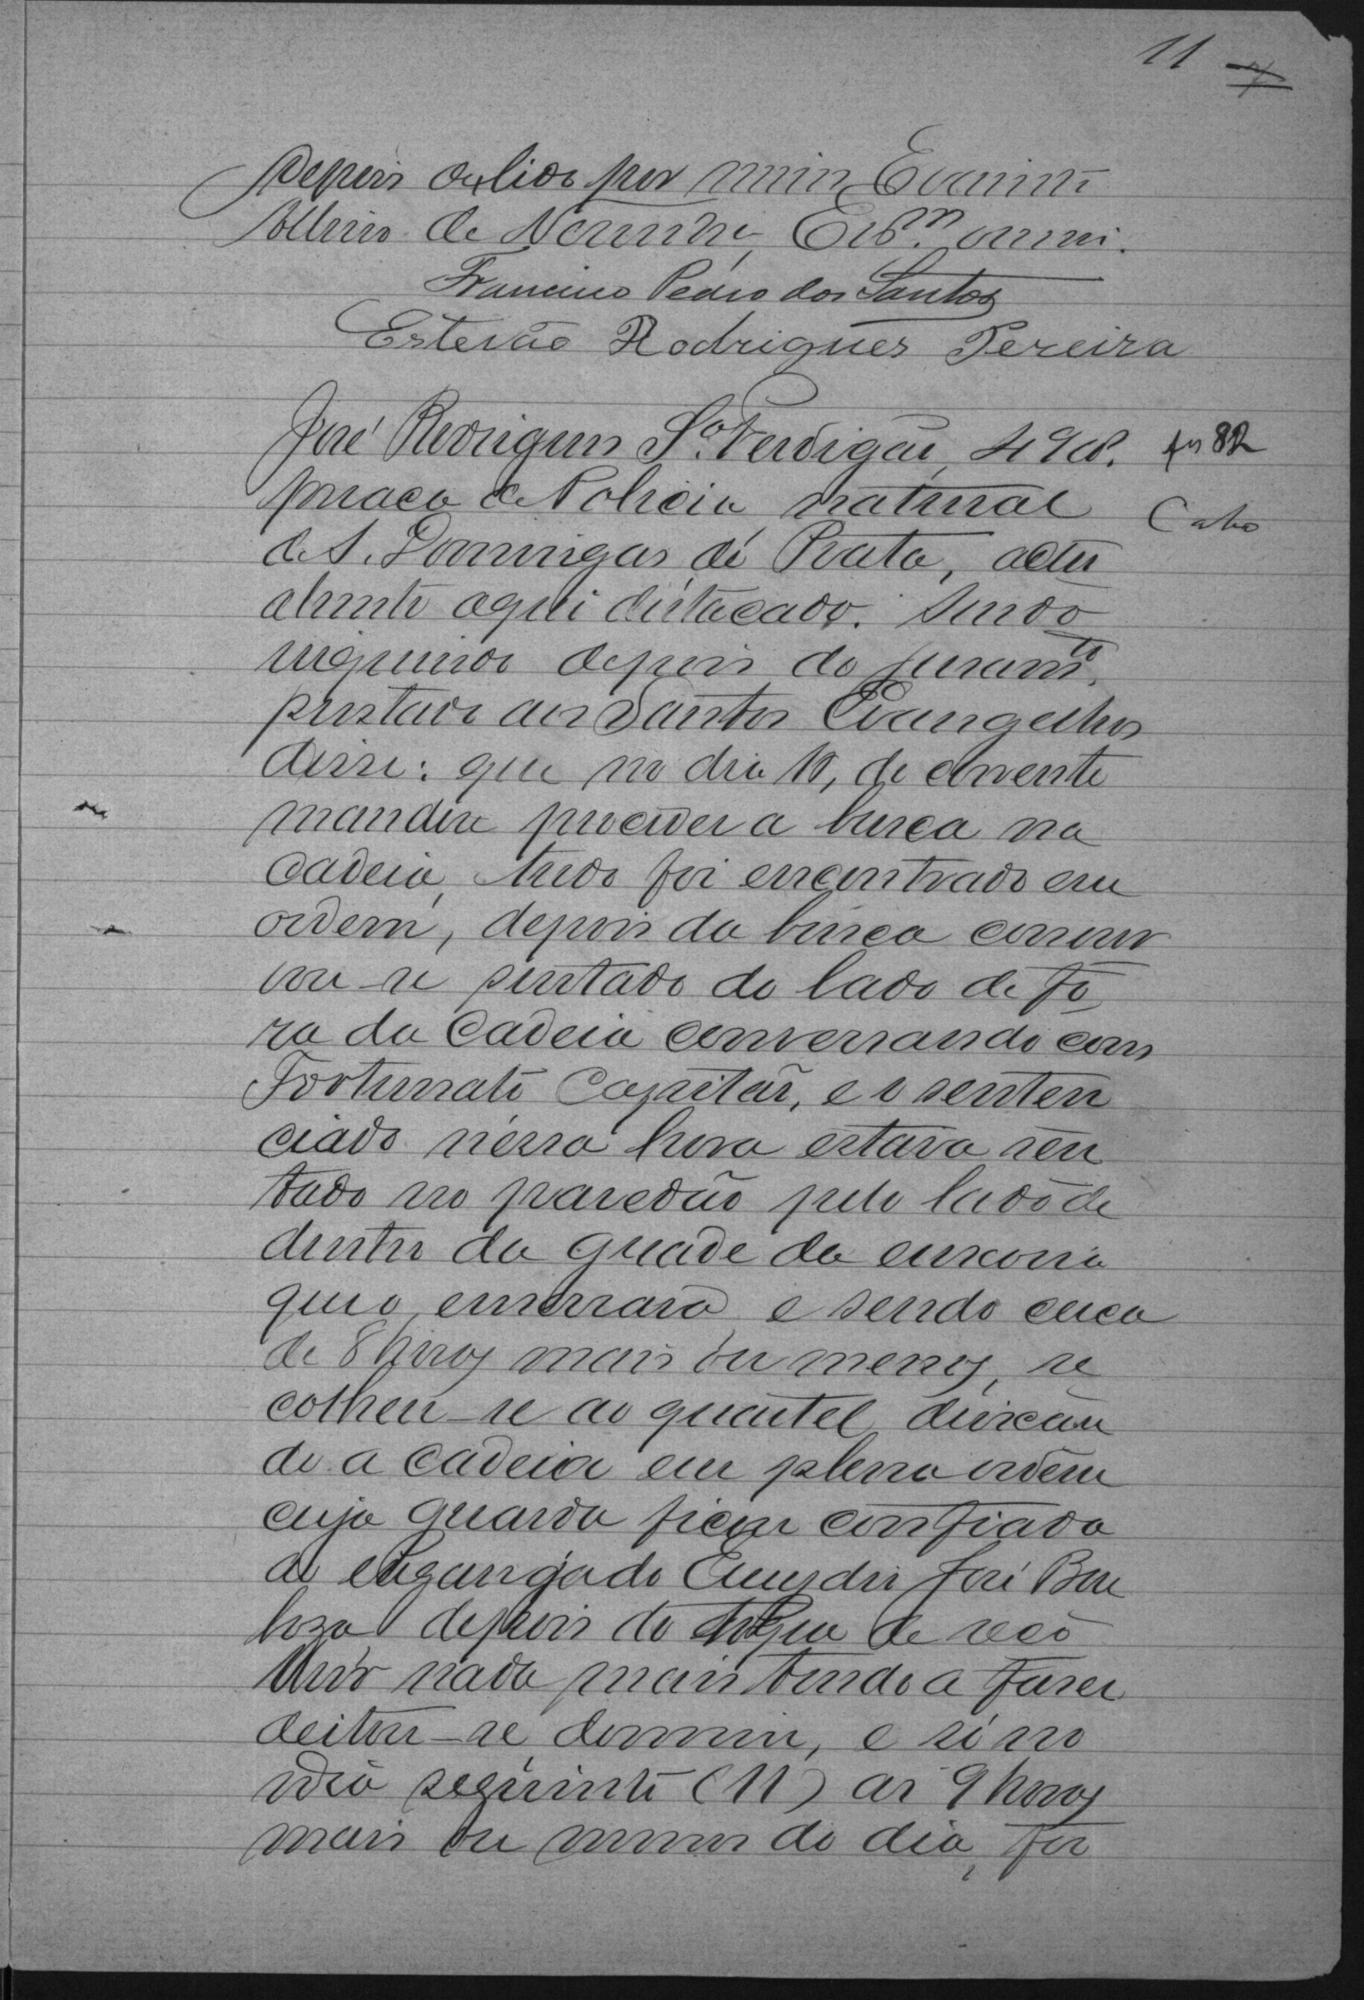 11 7
depois de lido por mim Evaristo
Albino de Noronha, Esc.m o escrevi.
Francisco Pedro dos Santos
Estevão Rodrigues Pereira
José Rodrigues S.a Perdigão, 49 as. fs 82
praça de Policia natural Cabo
de S. Domingos do Prata, actu
almente aqui distacado. Sendo
inquirido depois do juram.to
prestado aos Santos Evangelhos
disse: que no dia 10, do corrente
mandou proceder a busca na
Cadeia, tudo foi encontrado em
ordem, depois da busca conser
vou-se sentado do lado de fo
ra da Cadeia conversando com
Fortunato Capitão, e o senten
ciado nessa hora estava sen
tado no paredão pelo lado de
dentro da grade da enxovia
que o encerrava e sendo cerca
de 8 horas mais ou menos, re
colheu-se ao quartel deixan
do a Cadeia em plena ordem
cuja guarda ficou confiada
ao enganjado Emydio José Bar
boza depois do toque de reco
lhir nada mais tendo a faser
deitou-se dormiu, e só no
dia seguinte (11) as 9 horas
mais ou menos do dia, foi